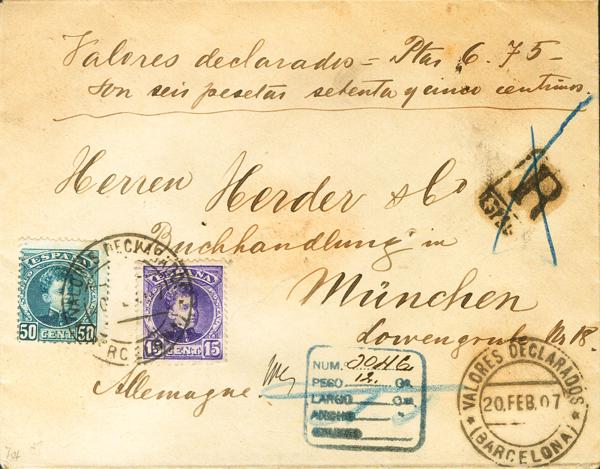 Valores declarados = Ptas 6.75 =
Son seis pesetas setenta y cinco centimos.
R
Herren Herder & Co
Buchhandlung in
München
Lowengrube No 18.
Allemagne
ESPAÑA
50 CENT. 50
ESPAÑA
15 CENT. 15
VALORES DECLARADOS
NUM.
PESO 12. Gs.
LARGO
ANCHO
VALORES DECLARADOS
20.FEB.07
(BARCELONA)